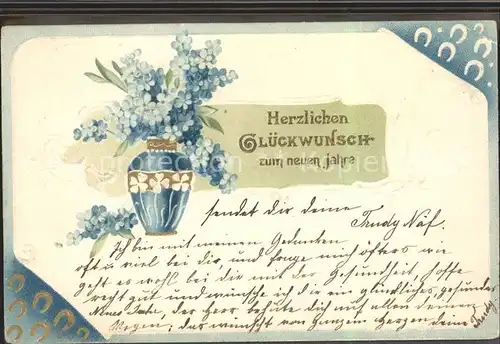 Herzlichen
GLÜCKWUNSCH
zum neuen Jahre
sendet dir deine
Trudy Näf.
Ich bin mit meinen Gedanken
oft u viel bei dir, und frage mich öfters wie
geht es wohl bei dir mit der Gesundheit, hoffe
recht gut und wünsche ich dir ein glückliches, gesundes
Neues Jahr, der Herr behüte dich auf allen deinen
Wegen, das wünscht von ganzem Herzen deine Trudy